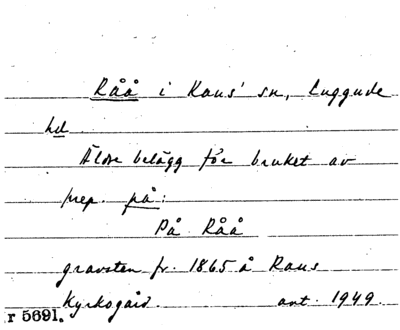 Råå i Raus' sn, Luggude
hd
Äldre belägg för bruket av
prep. på:
På Råå
gravsten fr. 1865 å Raus
Kyrkogård. ant. 1949.
r 5691.